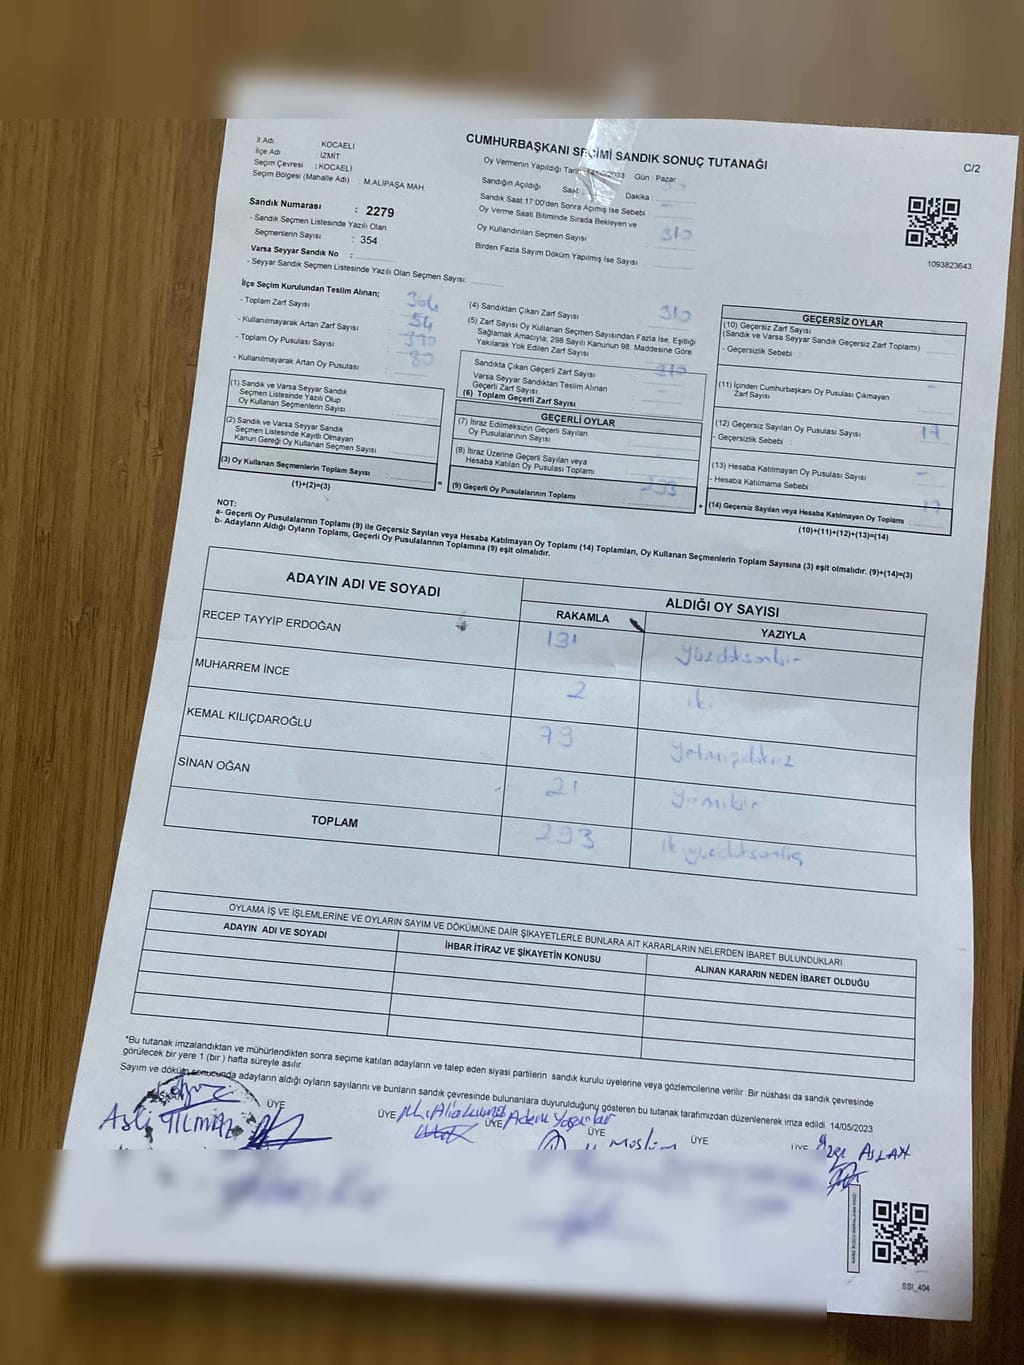 CUMHURBAŞKANI SEÇİMİ SANDIK SONUÇ TUTANAĞI
C/2
İl Adı : KOCAELİ
İlçe Adı : İZMİT
Seçim Çevresi : KOCAELİ
Seçim Bölgesi (Mahalle Adı) : M.ALİPAŞA MAH.
Sandık Numarası : 2279
- Sandık Seçmen Listesinde Yazılı Olan
Seçmenlerin Sayısı : 354
Varsa Seyyar Sandık No :
- Seyyar Sandık Seçmen Listesinde Yazılı Olan Seçmen Sayısı:
Oy Vermenin Yapıldığı Tarih Gün : Pazar
Sandığın Açıldığı Saat Dakika
Sandık Saat 17:00'den Sonra Açılmış İse Sebebi :
Oy Verme Saati Bitiminde Sırada Bekleyen ve
Oy Kullandırılan Seçmen Sayısı : 310
Birden Fazla Sayım Döküm Yapılmış İse Sayısı :
1093823643
İlçe Seçim Kurulundan Teslim Alınan;
- Toplam Zarf Sayısı : 364
- Kullanılmayarak Artan Zarf Sayısı : 54
- Toplam Oy Pusulası Sayısı : 390
- Kullanılmayarak Artan Oy Pusulası Sayısı : 80
(1) Sandık ve Varsa Seyyar Sandık
Seçmen Listesinde Yazılı Olup
Oy Kullanan Seçmenlerin Sayısı :
(2) Sandık ve Varsa Seyyar Sandık
Seçmen Listesinde Kayıtlı Olmayan
Kanun Gereği Oy Kullanan Seçmen Sayısı :
(3) Oy Kullanan Seçmenlerin Toplam Sayısı :
(1)+(2)=(3)
=
(4) Sandıktan Çıkan Zarf Sayısı : 310
(5) Zarf Sayısı Oy Kullanan Seçmen Sayısından Fazla İse, Eşitliği
Sağlamak Amacıyla; 298 Sayılı Kanunun 98. Maddesine Göre
Yakılarak Yok Edilen Zarf Sayısı :
Sandıkta Çıkan Geçerli Zarf Sayısı : 310
Varsa Seyyar Sandıktan Teslim Alınan
Geçerli Zarf Sayısı :
(6) Toplam Geçerli Zarf Sayısı
GEÇERLİ OYLAR
(7) İtiraz Edilmeksizin Geçerli Sayılan
Oy Pusulalarının Sayısı :
(8) İtiraz Üzerine Geçerli Sayılan veya
Hesaba Katılan Oy Pusulası Toplamı :
(9) Geçerli Oy Pusulalarının Toplamı : 293
+
GEÇERSİZ OYLAR
(10) Geçersiz Zarf Sayısı :
(Sandık ve Varsa Seyyar Sandık Geçersiz Zarf Toplamı)
- Geçersizlik Sebebi :
(11) İçinden Cumhurbaşkanı Oy Pusulası Çıkmayan
Zarf Sayısı : -
(12) Geçersiz Sayılan Oy Pusulası Sayısı : 17
- Geçersizlik Sebebi :
(13) Hesaba Katılmayan Oy Pusulası Sayısı : -
- Hesaba Katılmama Sebebi :
(14) Geçersiz Sayılan veya Hesaba Katılmayan Oy Toplamı : 17
(10)+(11)+(12)+(13)=(14)
NOT:
a- Geçerli Oy Pusulalarının Toplamı (9) ile Geçersiz Sayılan veya Hesaba Katılmayan Oy Toplamı (14) Toplamları, Oy Kullanan Seçmenlerin Toplam Sayısına (3) eşit olmalıdır. (9)+(14)=(3)
b- Adayların Aldığı Oyların Toplamı, Geçerli Oy Pusulalarının Toplamına (9) eşit olmalıdır.
ADAYIN ADI VE SOYADI ALDIĞI OY SAYISI
RAKAMLA YAZIYLA
RECEP TAYYİP ERDOĞAN 191 yüzdoksanbir
MUHARREM İNCE 2 iki
KEMAL KILIÇDAROĞLU 79 yetmişdokuz
SİNAN OĞAN 21 yirmibir
TOPLAM 293 ikiyüzdoksanüç
OYLAMA İŞ VE İŞLEMLERİNE VE OYLARIN SAYIM VE DÖKÜMÜNE DAİR ŞİKAYETLERLE BUNLARA AİT KARARLARIN NELERDEN İBARET BULUNDUKLARI
ADAYIN ADI VE SOYADI İHBAR İTİRAZ VE ŞİKAYETİN KONUSU ALINAN KARARIN NEDEN İBARET OLDUĞU
*Bu tutanak imzalandıktan ve mühürlendikten sonra seçime katılan adayların ve talep eden siyasi partilerin sandık kurulu üyelerine veya gözlemcilerine verilir. Bir nüshası da sandık çevresinde
görülecek bir yere 1 (bir ) hafta süreyle asılır.
Sayım ve döküm sonucunda adayların aldığı oyların sayılarını ve bunların sandık çevresinde bulunanlara duyurulduğunu gösteren bu tutanak tarafımızdan düzenlenerek imza edildi. 14/05/2023
BAŞKAN ÜYE ÜYE ÜYE ÜYE ÜYE ÜYE
Aslı YILMAZ Adem Müslüm ASLAN
SSI_404